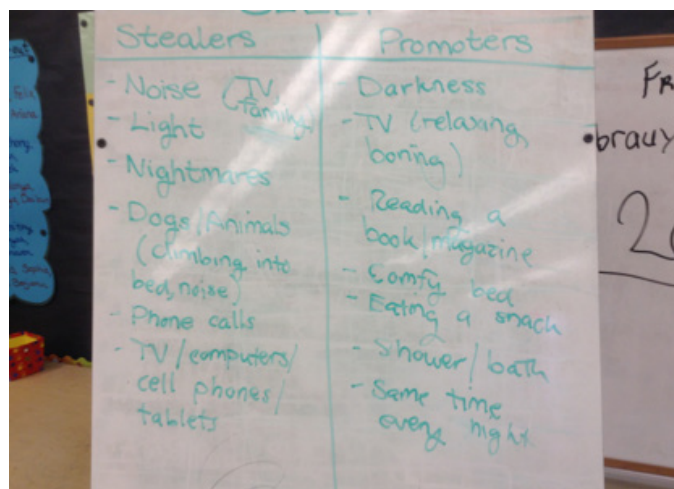 Stealers
- Noise (TV
family)
- Light
- Nightmares
- Dogs/Animals
(climbing into
bed, noise)
- Phone calls
- TV/computers/
cell phones/
tablets
Promoters
Darkness
- TV (relaxing,
boring)
- Reading a
book/magazine
- Comfy bed
- Eating a snack
- Shower/bath
- Same time
every night